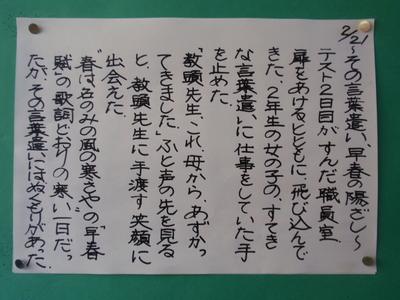 2/21
～その言葉遣い、早春の陽ざし～
テスト2日目がすんだ職員室
扉をあけるとともに、飛び込んで
きた、2年生の女の子の、すてき
な言葉遣いに仕事をしていた手
を止めた。
「教頭先生、これ、母から、あずかっ
てきました。」ふと声の先を見る
と、教頭先生に手渡す笑顔に
出会えた。
“春は名のみの風の寒さや”の『早春
賦』の歌詞どおりの寒い一日だっ
たが、その言葉遣いにはぬくもりがあった。